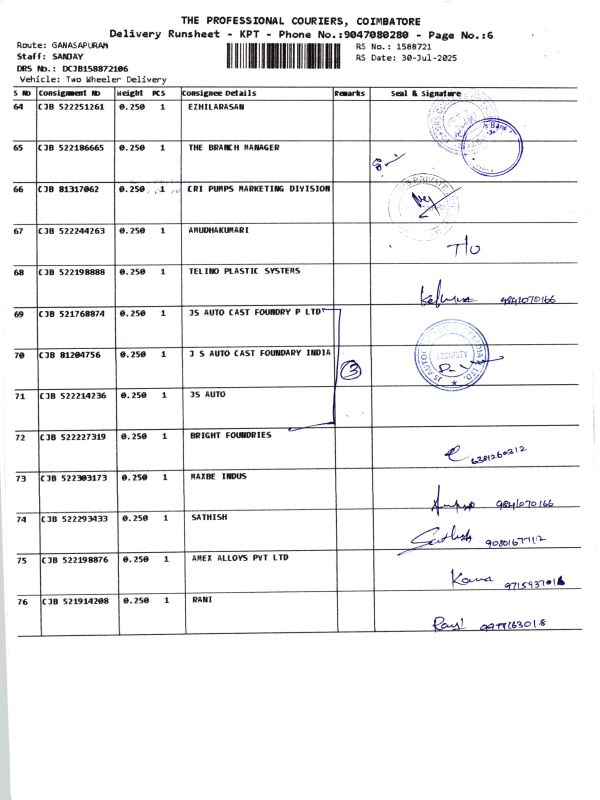 THE PROFESSIONAL COURIERS, COIMBATORE
Delivery Runsheet - KPT - Phone No.:9047080280 - Page No.:6
Route: GANASAPURAM
Staff: SANJAY
DRS No.: DCJB158872106
Vehicle: Two Wheeler Delivery
RS No.: 1588721
RS Date: 30-Jul-2025
S No Consignment No Weight PCS Consignee Details Remarks Seal & Signature
64 CJB 522251261 0.250 1 EZHILARASAN
Bank
65 CJB 522186665 0.250 1 THE BRANCH MANAGER
66 CJB 81317062 0.250 1 CRI PUMPS MARKETING DIVISION
PRIVATE
67 CJB 522244263 0.250 1 AMUDHAKUMARI
T/o
68 CJB 522198888 0.250 1 TELINO PLASTIC SYSTEMS
9841070166
69 CJB 521768874 0.250 1 JS AUTO CAST FOUNDRY P LTD
70 CJB 81204756 0.250 1 J S AUTO CAST FOUNDARY INDIA
3
JS AUTO INDIA LTD.
SECURITY
71 CJB 522214236 0.250 1 JS AUTO
72 CJB 522227319 0.250 1 BRIGHT FOUNDRIES
6381260312
73 CJB 522303173 0.250 1 MAXBE INDUS
9841070166
74 CJB 522293433 0.250 1 SATHISH
Sathish 9080167712
75 CJB 522198876 0.250 1 AMEX ALLOYS PVT LTD
Kana 9715937016
76 CJB 521914208 0.250 1 RANI
9977163018